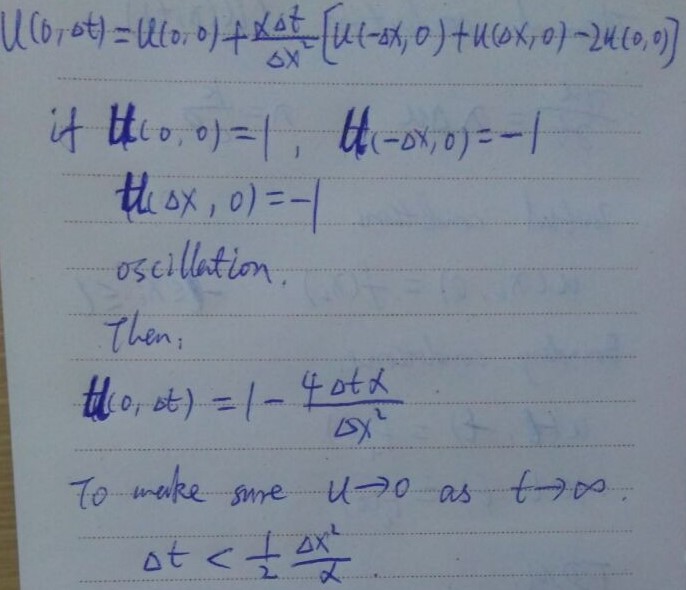 u(0, Δt) = u(0, 0) + αΔt/Δx² [u(-Δx, 0) + u(Δx, 0) - 2u(0, 0)]
if u(0, 0) = 1, u(-Δx, 0) = -1
u(Δx, 0) = -1
oscillation.
Then,
u(0, Δt) = 1 - 4Δtα/Δx²
To make sure u→0 as t→∞.
Δt < 1/2 Δx²/α.